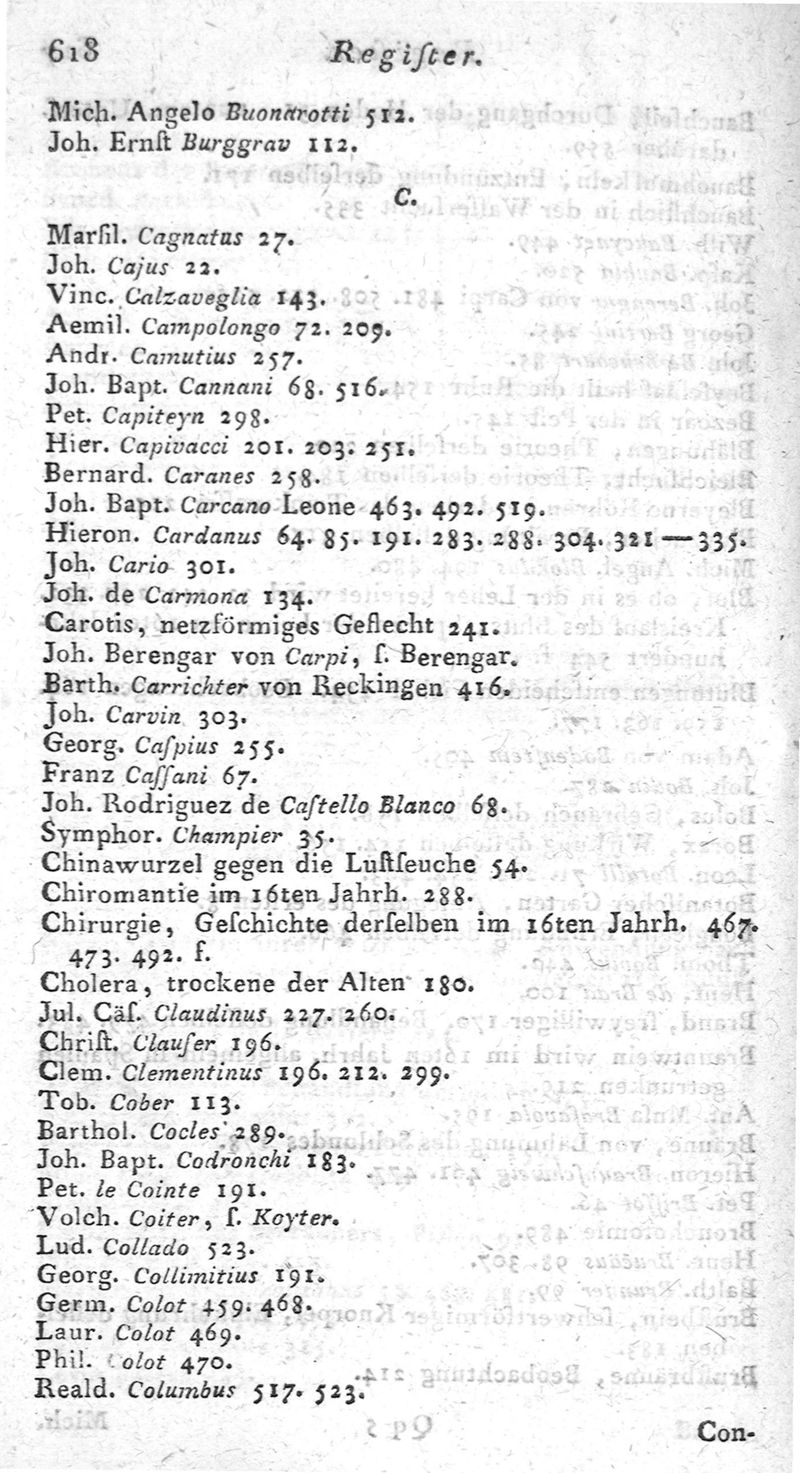 618 Regiſter.
Mich. Angelo Buonarotti 512.
Joh. Ernſt Burggrav 112.
C.
Marſil. Cagnatus 27.
Joh. Cajus 22.
Vinc. Calzaveglia 143.
Aemil. Campolongo 72. 209.
Andr. Camutius 257.
Joh. Bapt. Cannani 68. 516.
Pet. Capiteyn 298.
Hier. Capivacci 201. 203. 251.
Bernard. Caranes 258.
Joh. Bapt. Carcano Leone 463. 492. 519.
Hieron. Cardanus 64. 85. 191. 283. 288. 304. 321 — 335.
Joh. Cario 301.
Joh. de Carmona 134.
Carotis, netzförmiges Geflecht 241.
Joh. Berengar von Carpi, ſ. Berengar.
Barth. Carrichter von Reckingen 416.
Joh. Carvin 303.
Georg. Caſpius 255.
Franz Caſſani 67.
Joh. Rodriguez de Caſtello Blanco 68.
Symphor. Champier 35.
Chinawurzel gegen die Luſtſeuche 54.
Chiromantie im 16ten Jahrh. 288.
Chirurgie, Geſchichte derſelben im 16ten Jahrh. 467.
473. 492. f.
Cholera, trockene der Alten 180.
Jul. Cäſ. Claudinus 227. 260.
Chriſt. Clauſer 196.
Clem. Clementinus 196. 212. 299.
Tob. Cober 113.
Barthol. Cocles 289.
Joh. Bapt. Codronchi 183.
Pet. le Cointe 191.
Volch. Coiter, ſ. Koyter.
Lud. Collado 523.
Georg. Collimitius 191.
Germ. Colot 459. 468.
Laur. Colot 469.
Phil. Colot 470.
Reald. Columbus 517. 523.
Con-